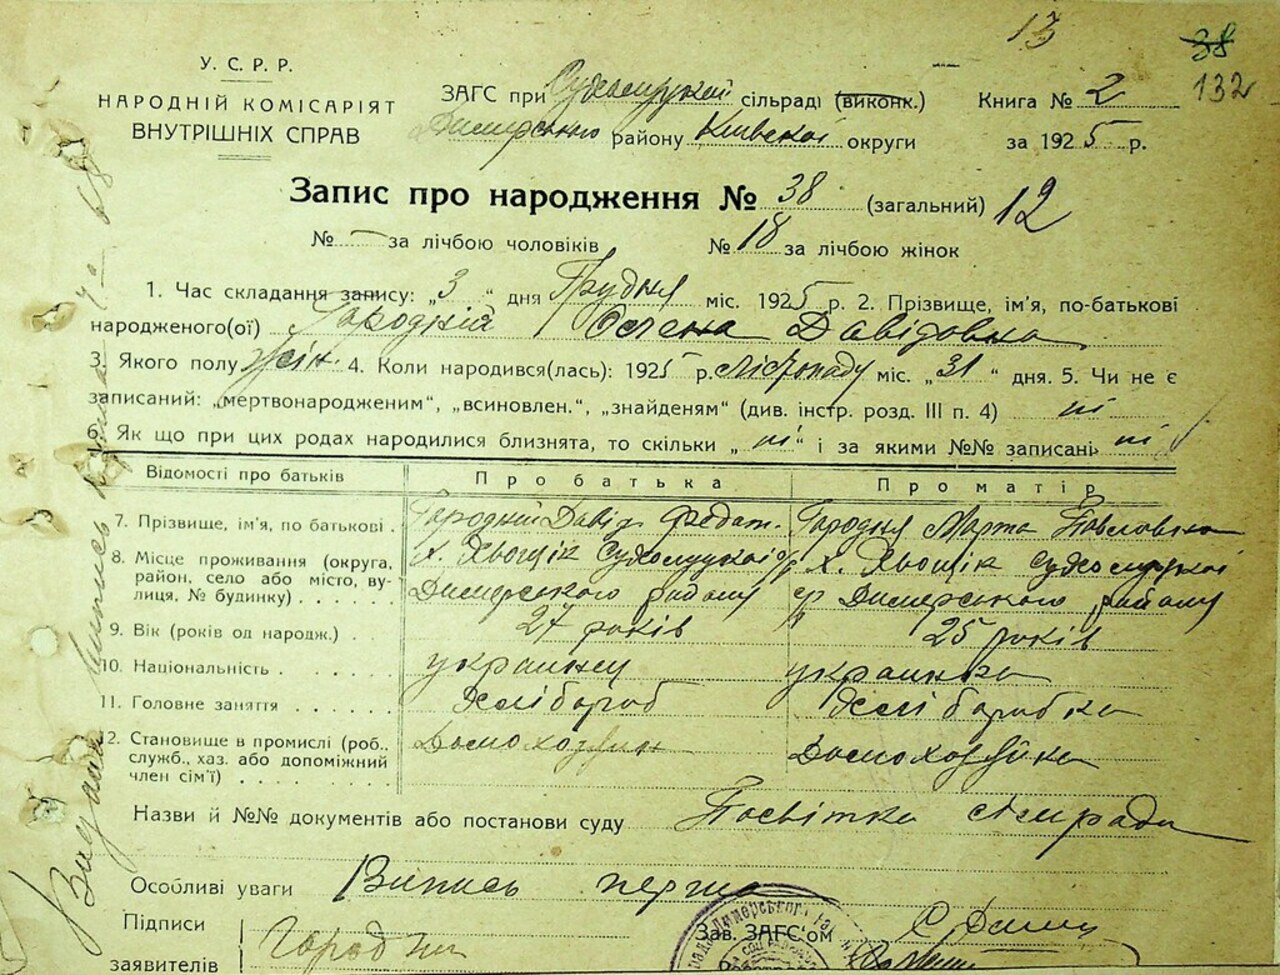 13
38
132
У. С. Р. Р.
НАРОДНІЙ КОМІСАРІЯТ
ВНУТРІШНІХ СПРАВ
ЗАГС при Сухолуцкой сільраді (виконк.) Книга № 2
Димерського району Київскоі округи за 1925 р.
Запис про народження № 38 (загальний) 12
№ – за лічбою чоловіків № 18 за лічбою жінок
1. Час складання запису: „3“ дня Грудня міс. 1925 р. 2. Прізвище, ім'я, по-батькові
народженого(ої) Городній Олена Давідовна
3. Якого полу жін. 4. Коли народився(лась): 1925 р. лістопаду міс. „31“ дня. 5. Чи не є
записаний: „мертвонародженим“, „всиновлен.“, „знайденям“ (див. інстр. розд. III п. 4) ні
6. Як що при цих родах народилися близнята, то скільки „ні“ і за якими №№ записані ні
Відомості про батьків Про батька Про матір
7. Прізвище, ім'я, по батькові . Городній Давід Федот. Городня Марта Павловна
8. Місце проживання (округа, х. Хвощік Сухолуцкоі с/р х. Хвощік Сухолуцкоі
район, село або місто, вулиця, № будинку) . . . . . . Димерського району с/р Димерського району
9. Вік (років од народж.) . 27 років 25 років
10. Національність . . . . українец українка
11. Головне заняття . . . . . . Хлібороб Хліборобка
12. Становище в промислі (роб., Домохозяин Домохозяйка
служб., хаз. або допоміжний
член сім'ї) . . . . . . . . .
Назви й №№ документів або постанови суду Посвітка сілради
Особливі уваги Випись перша
Підписи
заявителів Городни
Зав. ЗАГС'ом
Димерського
Видана випись перша